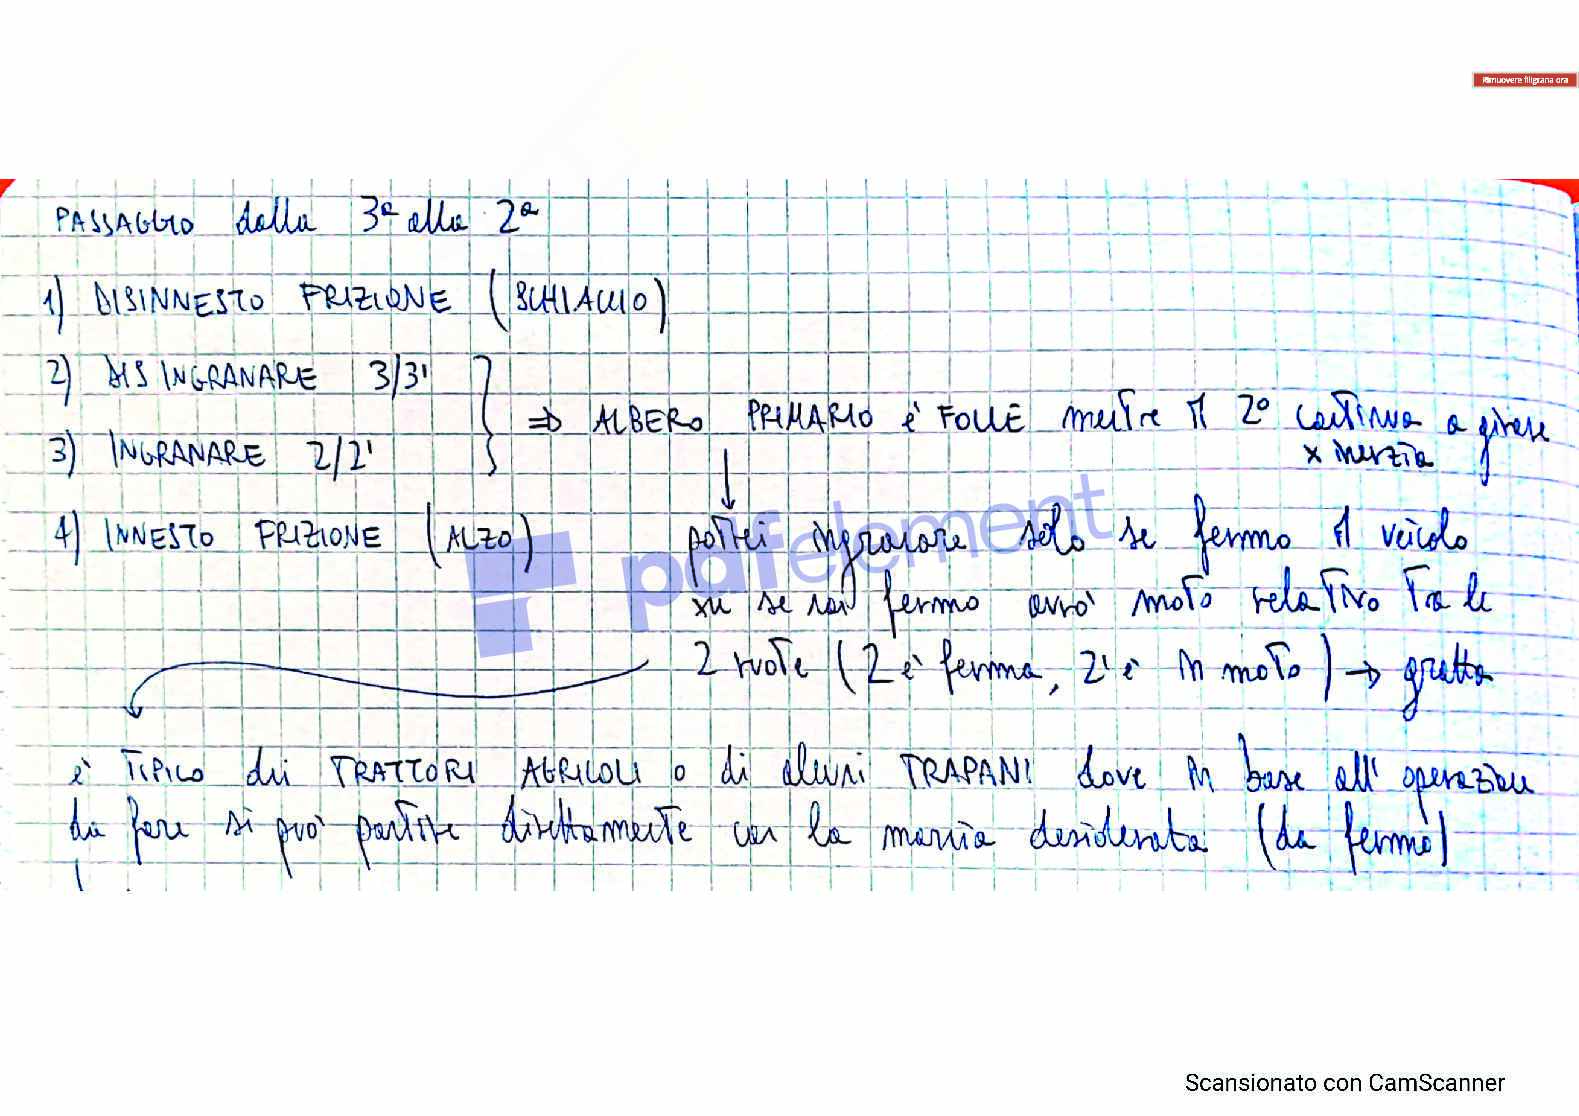 Rimuovere filigrana ora
PASSAGGIO dalla 3ª alla 2ª
1) DISINNESTO FRIZIONE (SCHIACCIO)
2) DISINGRANARE 3/3'
3) INGRANARE 2/2'
⇒ ALBERO PRIMARIO è FOLLE mentre il 2° continua a girare
x inerzia
4) INNESTO FRIZIONE (ALZO)
potrei ingranare solo se fermo il veicolo
se non fermo avrò moto relativo tra le
2 ruote (2 è ferma, 2' è in moto) → gratta
è TIPICO dei TRATTORI AGRICOLI o di alcuni TRAPANI dove in base all'operazione
da fare si può partire direttamente con la marcia desiderata (da fermo)
pdfelement
Scansionato con CamScanner